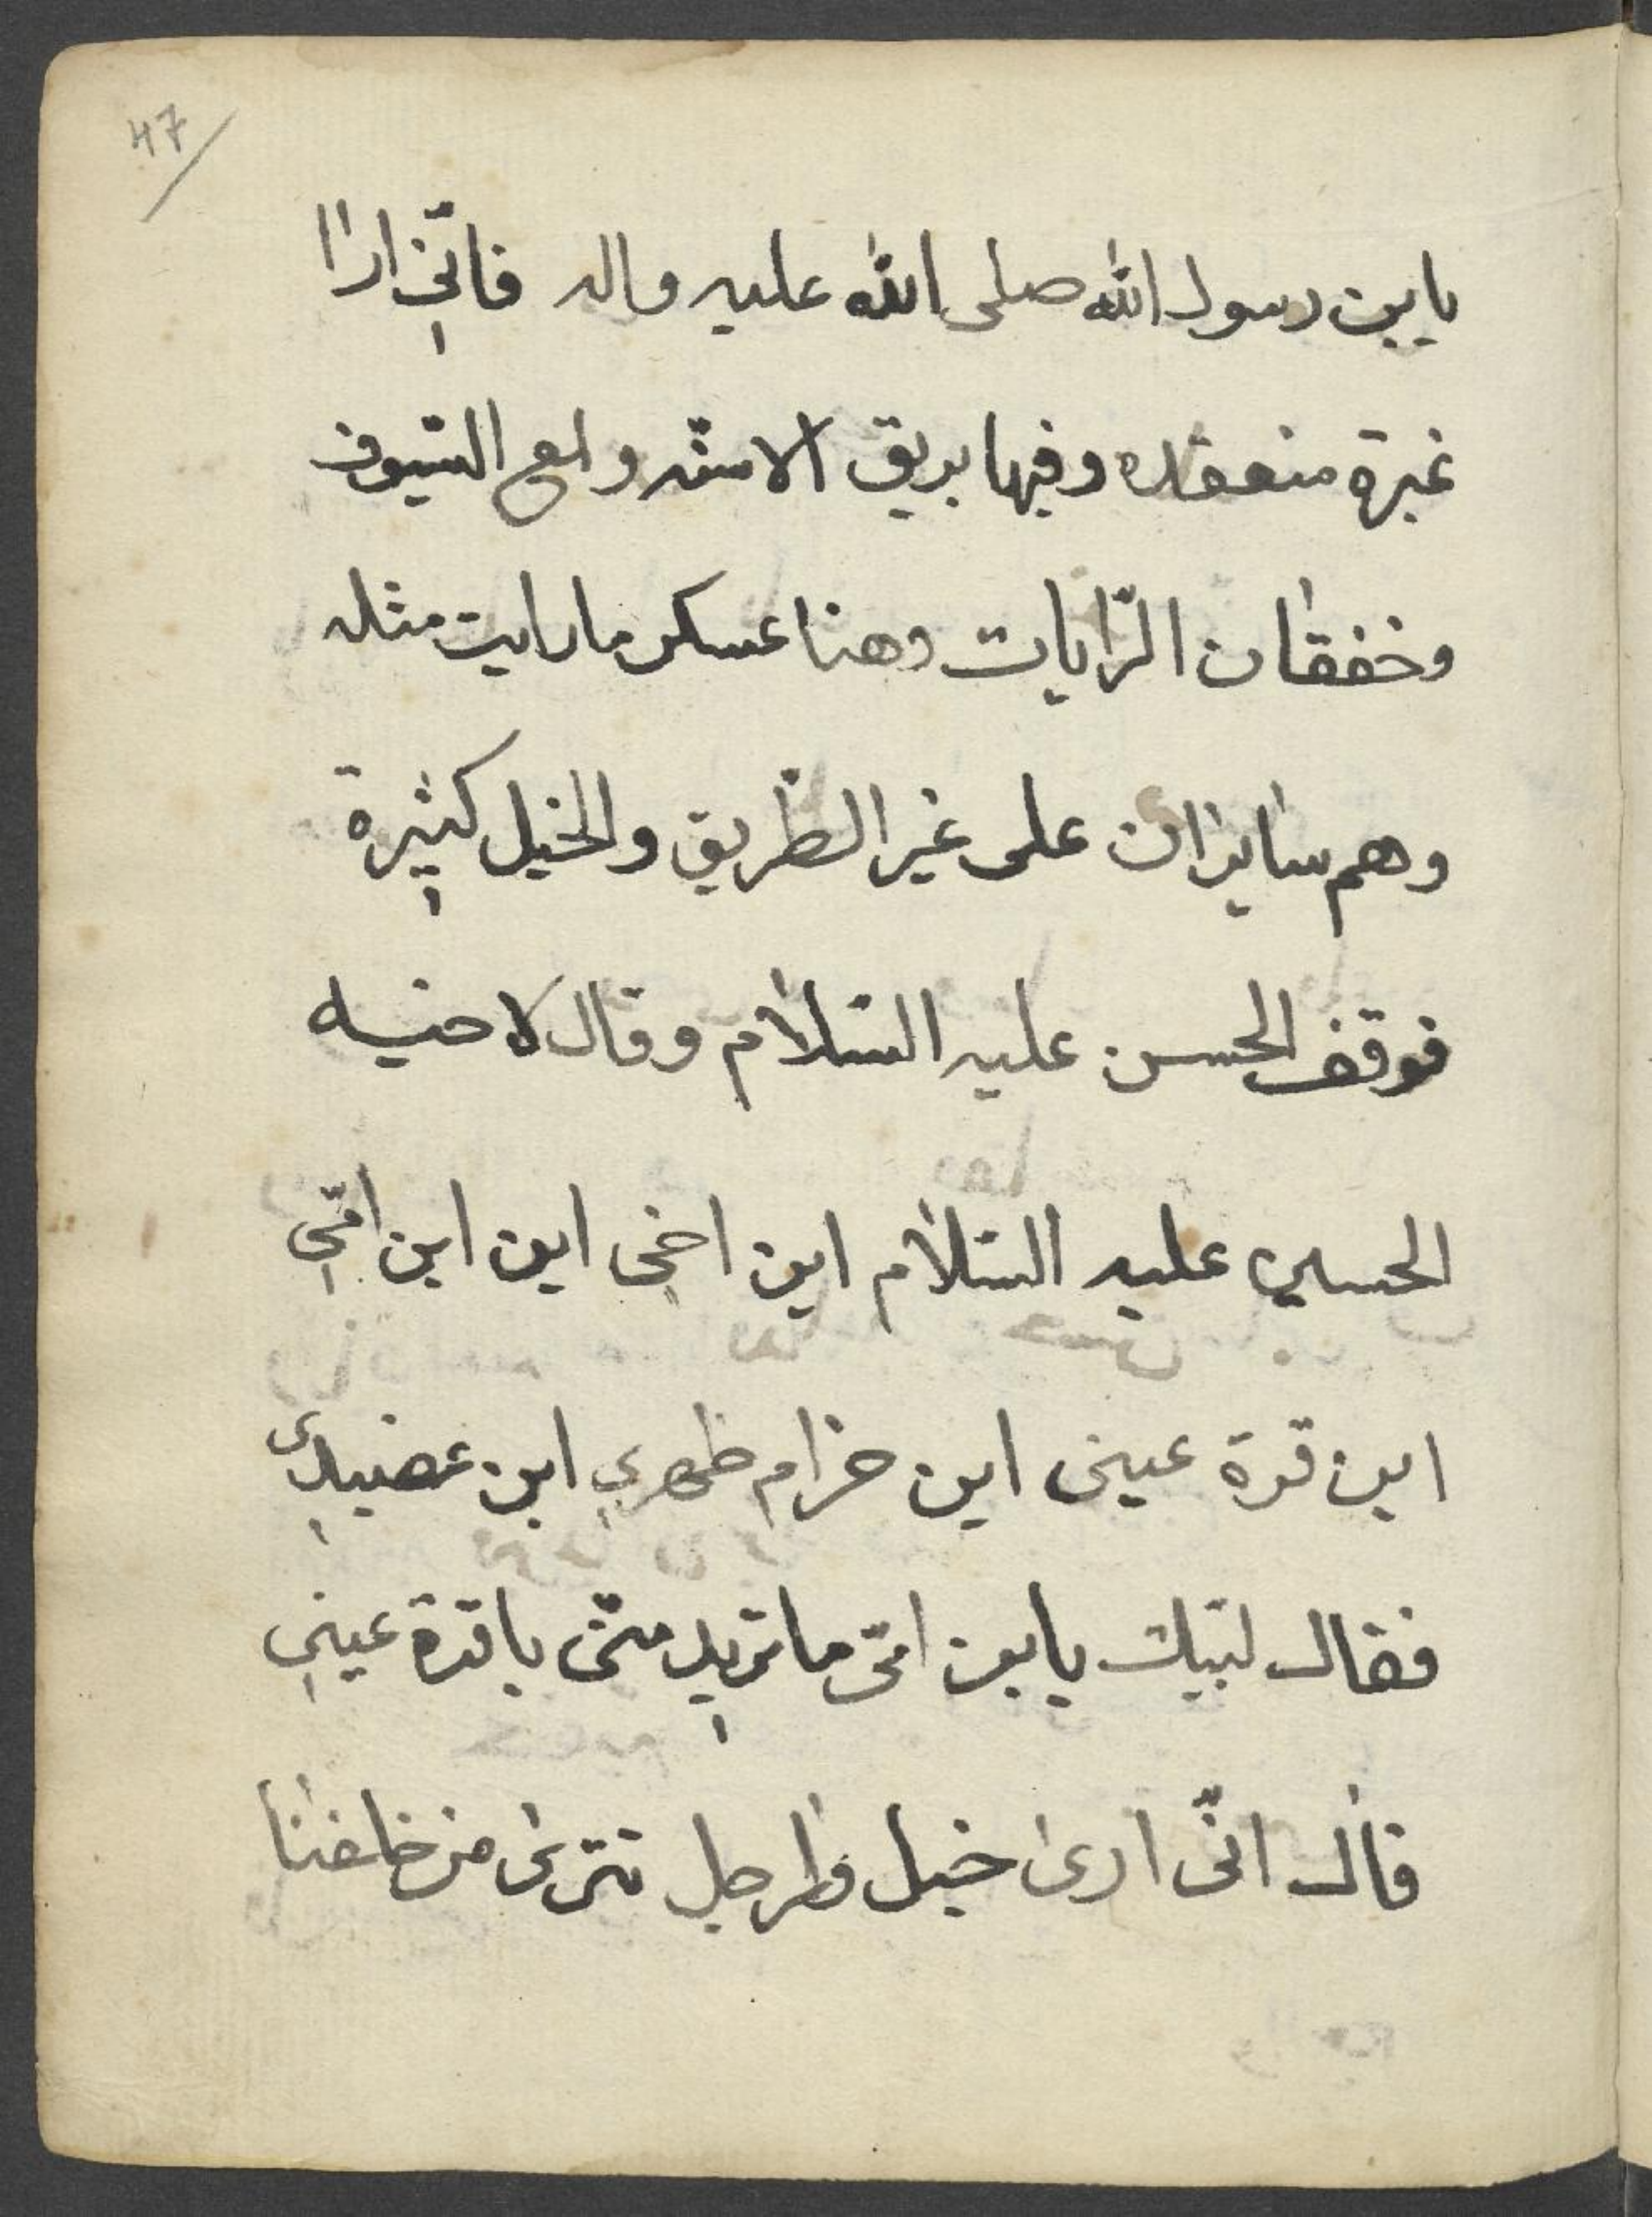 47
يابن رسول الله صلى الله عليه واله فانّي ارا
غبرة منعقده وفيها بريق الاسنّه ولمع السّيوف
وخفقان الرّايات وهنا عسكر ما رايت مثله
وهم سايران على غير الطّريق والخيل كثيرة
فوقف الحسن عليه السّلام وقال لاخيه
الحسين عليه السّلام اين اخي اين ابن امّي
اين قرة عيني اين حزام ظهري اين عضيدي
فقال لبّيك يابن امّى ما تريد منّى يا قرة عيني
قال انّى ارى خيل والرجل تترى من خلفنا